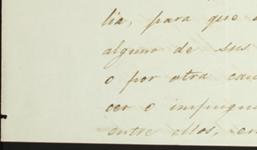 lia, para que
alguno de sus
o por otra cau
cer o impugn
entre ellos, en